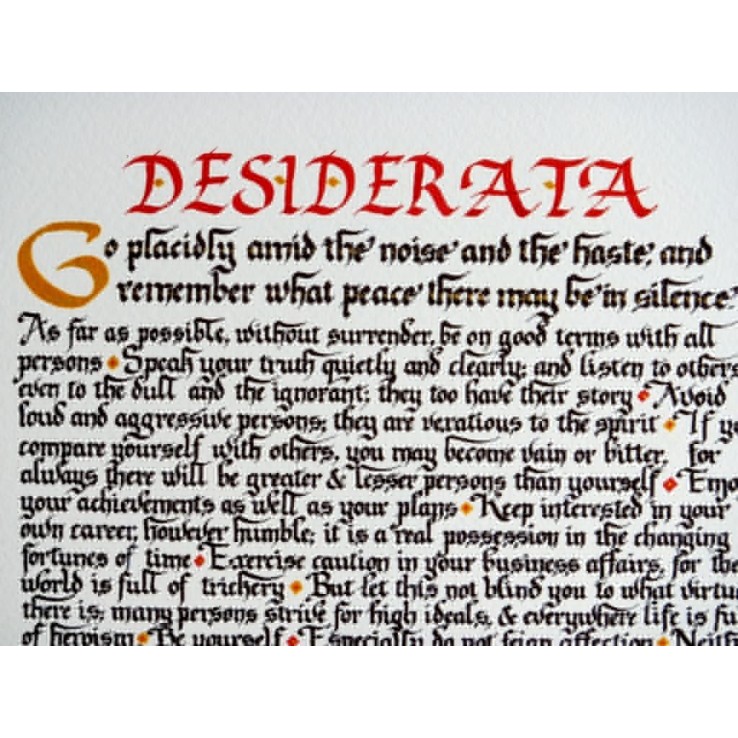 DESIDERATA
Go placidly amid the noise and the haste; and
remember what peace there may be in silence.
As far as possible, without surrender, be on good terms with all
persons Speak your truth quietly and clearly; and listen to others,
even to the dull and the ignorant; they too have their story Avoid
loud and aggressive persons; they are vexatious to the spirit If yo
compare yourself with others, you may become vain or bitter, for
always there will be greater & lesser persons than yourself Enjo
your achievements as well as your plans Keep interested in your
own career, however humble; it is a real possession in the changing
fortunes of time Exercise caution in your business affairs, for the
world is full of trickery But let this not blind you to what virtu
there is; many persons strive for high ideals, & everywhere life is fu
of heroism Be yourself Especially do not feign affection Neith